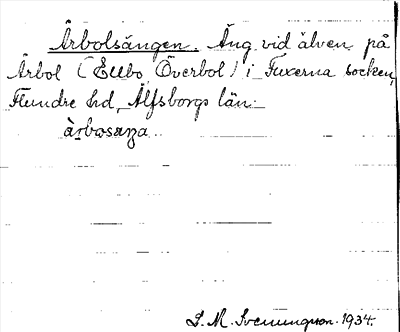 Årbolsängen. Äng vid älven på
Årbol (Ellbo Överbol) i Fuxerna socken,
Flundre hd, Älfsborgs län.
S. M. Svenungson. 1934.